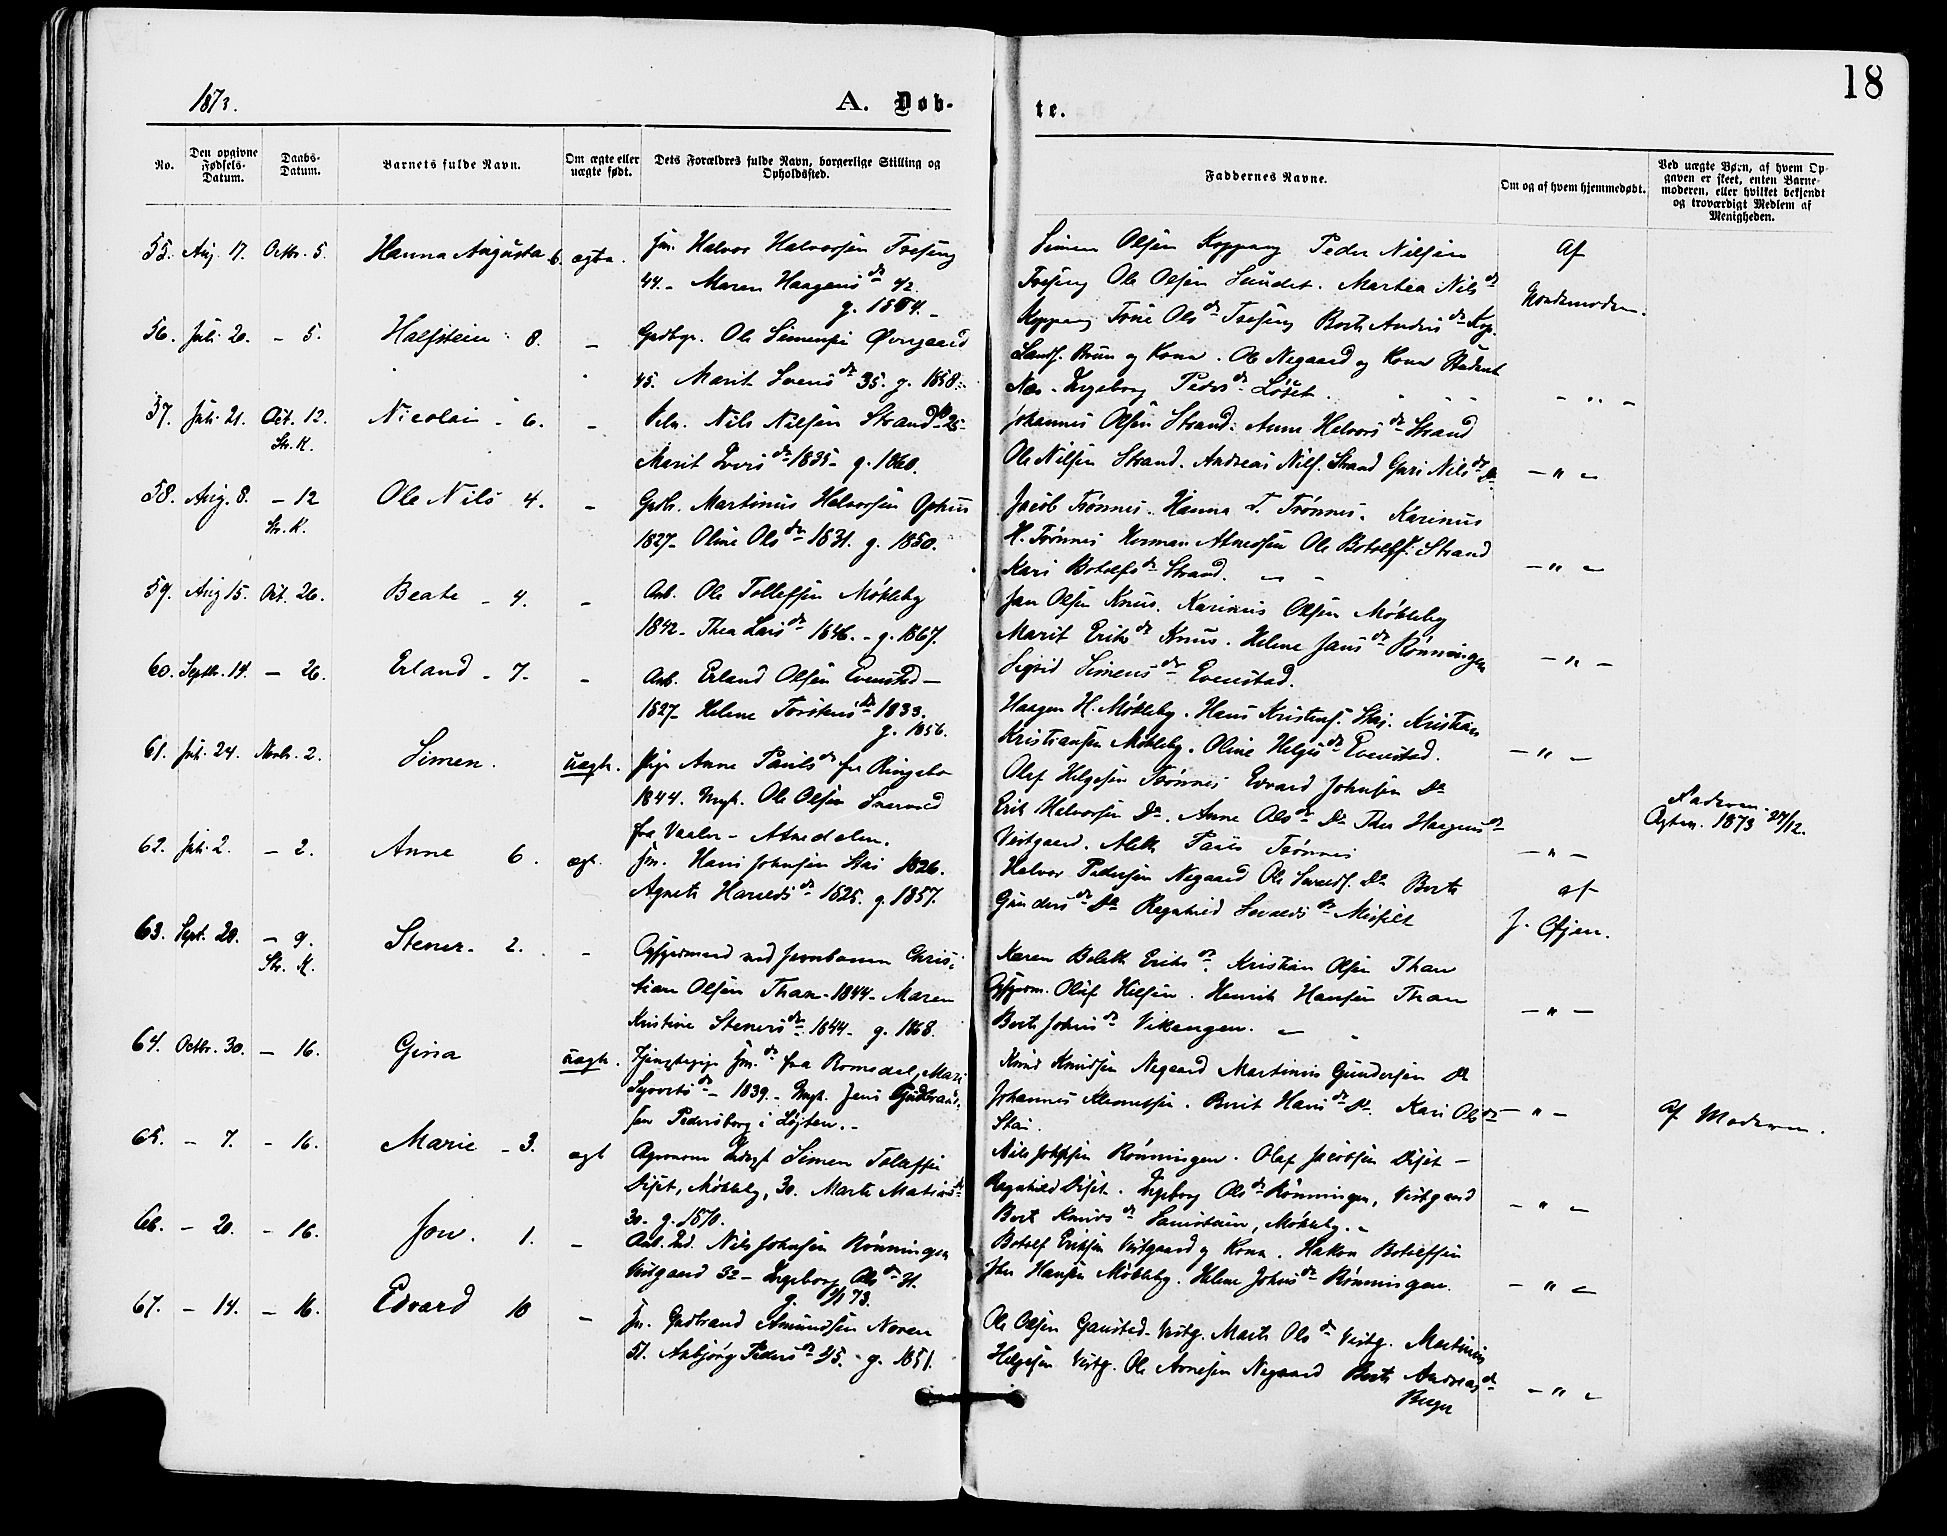 18
1873.
A. Døb-
te.
No.
Den opgivne Fødsels-Datum.
Daabs-Datum.
Barnets fulde Navn.
Om ægte eller uægte født.
Dets Forældres fulde Navn, borgerlige Stilling og Opholdssted.
Faddernes Navne.
Om og af hvem hjemmedøbt.
Ved uægte Børn, af hvem Opgaven er skeet, enten Barnemoderen, eller hvilket bekjendt og troværdigt Medlem af Menigheden.
55. Aug. 17. Octbr. 5. Hanna Augusta 6. ægte. Jm. Halvor Halvorsen Treseng
44. - Maren Haagensdr 42.
g. 1864. -
Simen Olsen Koppang Peder Nilsen
Treseng Ole Olsen Sundet. Marthea Nilsdr
Koppang Trine Olsdr Treseng Berte Andersdr Kop.
Af
Jordemoderen.
56. Juli 20. - 5. Halfstein 8. - Gedbgr. Ole Simensen Øvregaard
45. Marit Svensdr 35. g. 1858.
Brun og Kone. Ole Negaard og Kone Student
Næs. Ingeborg Pedersdr Løset.
- " -
57. Juli 21. Oct. 12. Nicolai - 6. - Nils Nilsen Strand
Str. K.
Marit Iversdr 1835 - g. 1860.
Johannes Olsen Strand. Anne Halvorsdr Strand
Ole Nilsen Strand. Andreas Nilss. Strand Guri Nilsdr Do
- " -
58. Aug. 8. - 12 Ole Nils 4. - Gedb. Martinus Halvorsen Ophus
Str. K.
1827 - Oline Olsdr 1831. g. 1850.
Jacob Trønnes. Hanna T. Trønnes. Karinus
H. Trønnes Herman Atnessen Ole Botolfs. Strand
Kari Botolfsdr Strand.
- " -
59. Aug 15. Oct. 26. Beate - 4. - Arb. Ole Tollefsen Møkleby
1842 - Thea Larsdr 1846. - g. 1867.
Jan Olsen Knus. Karinus Olsen Møkleby
Marit Eriksdr Knus. Helene Jansdr Rønningen
Sigrid Simensdr Evenstad.
- " -
60. Septbr. 14. - 26. Erland - 7. - Arb. Erland Olsen Evensted -
1827 - Helene Torstensdr 1833.
g. 1856.
Haagen H. Møkleby. Hans Kristens. Stai. Kristian
Kristiansen Møkleby. Oline Helgesdr Evenstad.
- " -
61. Juli 24. Novbr. 2. Simen. uægte. Pige Anne Paulsdr fra Ringebo
1844. Ungk. Ole Olsen
fra Vaaler - Atnedalen.
Olaf Helgesen Trønnes Edvard Johnsen Do
Erik Halvorsen Do. Anne Olsdr Do Thea Haagensdr
Vestgaard. Alette Pauls Trønnes
- " -
Faderen.
1873 27/12.
62. Juli 2. - 2. Anne 6. ægt. Jm. Hans Johnsen Stai 1826.
Agnete Haraldsdr 1825. g. 1857.
Halvor Pedersen Negaard Ole Do Berte
Gundersdr Do Ragnhild
af
J. Øfjen.
63. Sept. 20. - 9. Stener. 2. - Opsynsmand ved Jernbanen Chris-
Str. K.
tian Olsen Than - 1844 - Maren
Kristine Stenersdr 1844 - g. 1868.
Karen Beleth Eriksdr. Kristian Olsen Than
Opsynsm. Oluf Nilsen. Henrik Hansen Than
Berte Johnsdr Vikengen.
- " -
64. Octbr. 30. - 16. Gina uægte. Tjenestepige fra Romedal, Mari
Syvertsdr - 1839. - Ungk. Jens Gudbrand-
sen Pedersborg i Løiten. -
Knud Knudsen Negaard Martinus Gundersen Do
Johannes Klemetsen. Berit Hansdr Do. Kari Olsdr
Stai.
- " -
Af Moderen.
65. - 7. - 16. Marie - 3. ægt Agronom Simen Tollefsen
Diset, Møkleby, 30. Marte
30. g. 1870.
Nils Johnsen Rønningen. Olaf Jacobsen Diset -
Ragnhild Diset. Ingeborg Olsdr Rønningen, Vestgaard
Berte Knudsdr, Møkleby. -
- " -
66. - 20. - 16. Jon. 1. - Arb. Ind. Nils Johnsen Rønningen
Vestgaard 32 - Ingeborg Olsdr 31.
g. 73.
Botolf Eriksen Vestgaard og Kone. Hakon Botolfsen
Iver Hansen Møkleby. Helene Johnsdr Rønningen.
- " -
67. - 14. - 16. Edvard 10 - Jm. Gudbrand Amundsen Noren
51. Asbjørg Pedersdr 45. - g. 1851.
Ole Olsen Gansted - Vestg. Marte Olsdr Vestg. Martinus
Helgesen Vestg. Ole Arnesen Negaard Berte Andreasdr
Berger
- " -